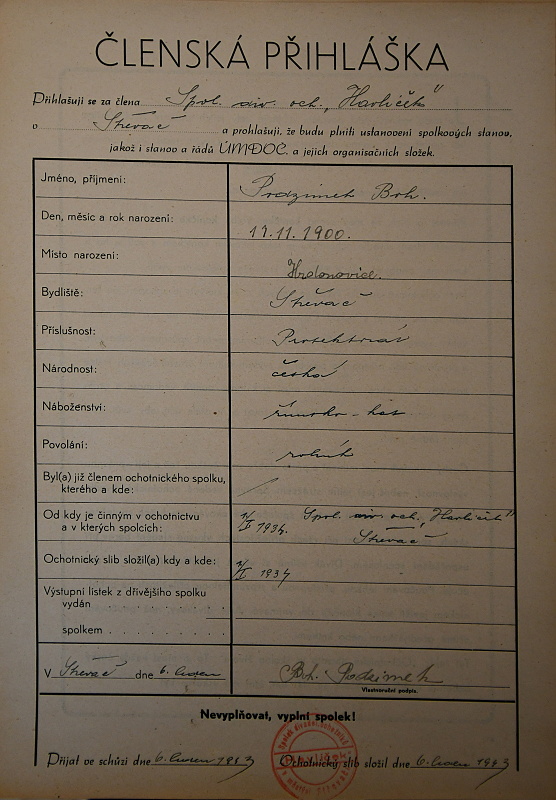 ČLENSKÁ PŘIHLÁŠKA
Přihlašuji se za člena Spol. div. och. „Havlíček“
v Střevač a prohlašuji, že budu plniti ustanovení spolkových stanov,
jakož i stanov a řádů ÚMDOČ. a jejich organisačních složek.
Jméno, příjmení: Podzimek Boh.
Den, měsíc a rok narození: 11.11.1900.
Místo narození:
Bydliště: Střevač
Příslušnost: Protektorát
Národnost: česká
Náboženství: římsko-kat
Povolání: rolník
Byl(a) již členem ochotnického spolku,
kterého a kde:
Od kdy je činným v ochotnictvu 1934. Spol. div. och. „Havlíček“
a v kterých spolcích: Střevač
Ochotnický slib složil(a) kdy a kde: 1934
Výstupní lístek z dřívějšího spolku
vydán . . . . . . . . . . .
spolkem . . . . . . . . . . .
V Střevač dne 6. Boh. Podzimek
Vlastnoruční podpis.
Nevyplňovat, vyplní spolek!
Přijat ve schůzi dne 6. 1943 Ochotnický slib složil dne 6. 1943